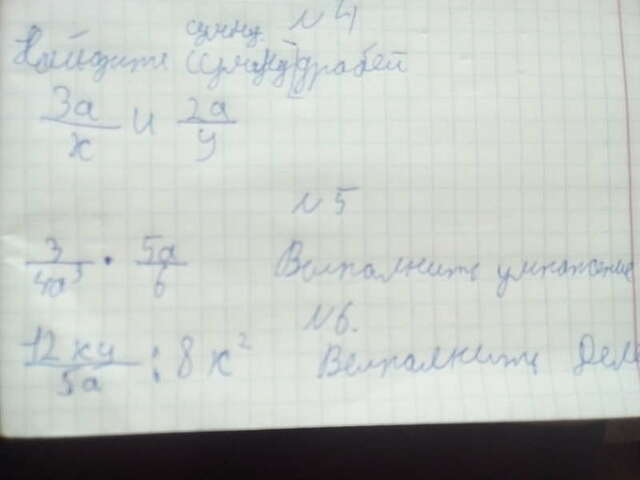 сумму. N4
Найдите (сумму) дробей
3a/x и 2a/y
N5
3/4a³ · 5a/6 Выполните умножение
N6.
12xy/5a : 8x² Выполните Деле